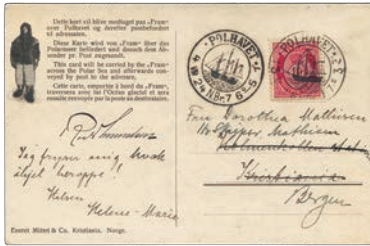 Dette kort vil blive medtaget paa «Fram»
over Polhavet og derefter postbefordret
til adressaten.
Diese Karte wird von «Fram» über das
Polarmeer befördert und danach dem Ab-
sender pr. Post zugesandt.
This card will be carried by the «Fram»
across the Polar Sea and afterwards con-
veyed by post to the adressee.
Cette carte, emportée à bord du «Fram»,
traversera avec lui l'Océan glacial et sera
ensuite renvoyée par la poste au destinataire.
POLHAVET
POLHAVET
Fru Dorothea Mathiesen
Holmenkollen
Kristiania
Bergen
Jeg fryser mig
heroppe!
Hilsen
Helene-Marie
Eneret Mittet & Co. Kristiania. Norge.